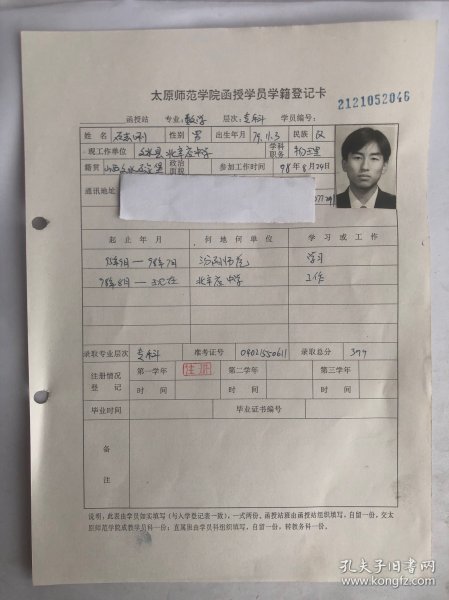 太原师范学院函授学员学籍登记卡
2121052046
函授站 专业:数学 层次:专科 学员编号:
姓名 性别 男 出生年月 79.11.3 民族 汉
现工作单位 文水县北辛店中学 学科职务 物理
籍贯 山西文水 政治面貌 参加工作时间 98年8月29日
通讯地址
起止年月 何地何单位 学习或工作
95年9月—98年7月 汾阳师范 学习
98年8月—现在 北辛店中学 工作
录取专业层次 专科 准考证号 04021550611 录取总分 377
注册情况登记 第一学年 注册 第二学年 第三学年
时间 时间 时间
毕业时间 毕业证书编号
备注
说明:此表由学员如实填写(与入学登记表一致),一式两份。函授站班由函授站组织填写,自留一份,交太
原师范学院成教学员科一份;直属班由学员科组织填写,自留一份,转教务科一份。
孔夫子旧书网
www.kongfz.com